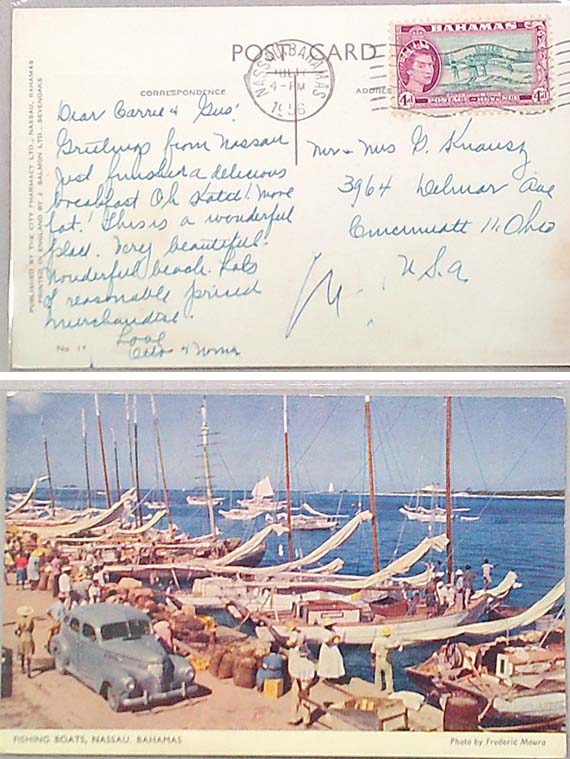 POST CARD
CORRESPONDENCE
ADDRE
NASSAU BAHAMAS
4 - PM
1956
BAHAMAS
4d
POSTAGE REVENUE
4d
PUBLISHED BY THE CITY PHARMACY LTD., NASSAU, BAHAMAS
PRINTED IN ENGLAND BY J. SALMON LTD., SEVENOAKS
Dear Carrie & Gus!
Greetings from Nassau
Just finished a delicious
breakfast Oh
hot! This is a wonderful
place. Very beautiful!
Wonderful beach. Lots
of reasonable priced
merchandise.
Love
Otto & Norma
No. 14
Mr & Mrs G. Knausz
3964 Delmar Ave
Cincinnati 11. Ohio
U.S.A
FISHING BOATS, NASSAU, BAHAMAS
Photo by Frederic Maura